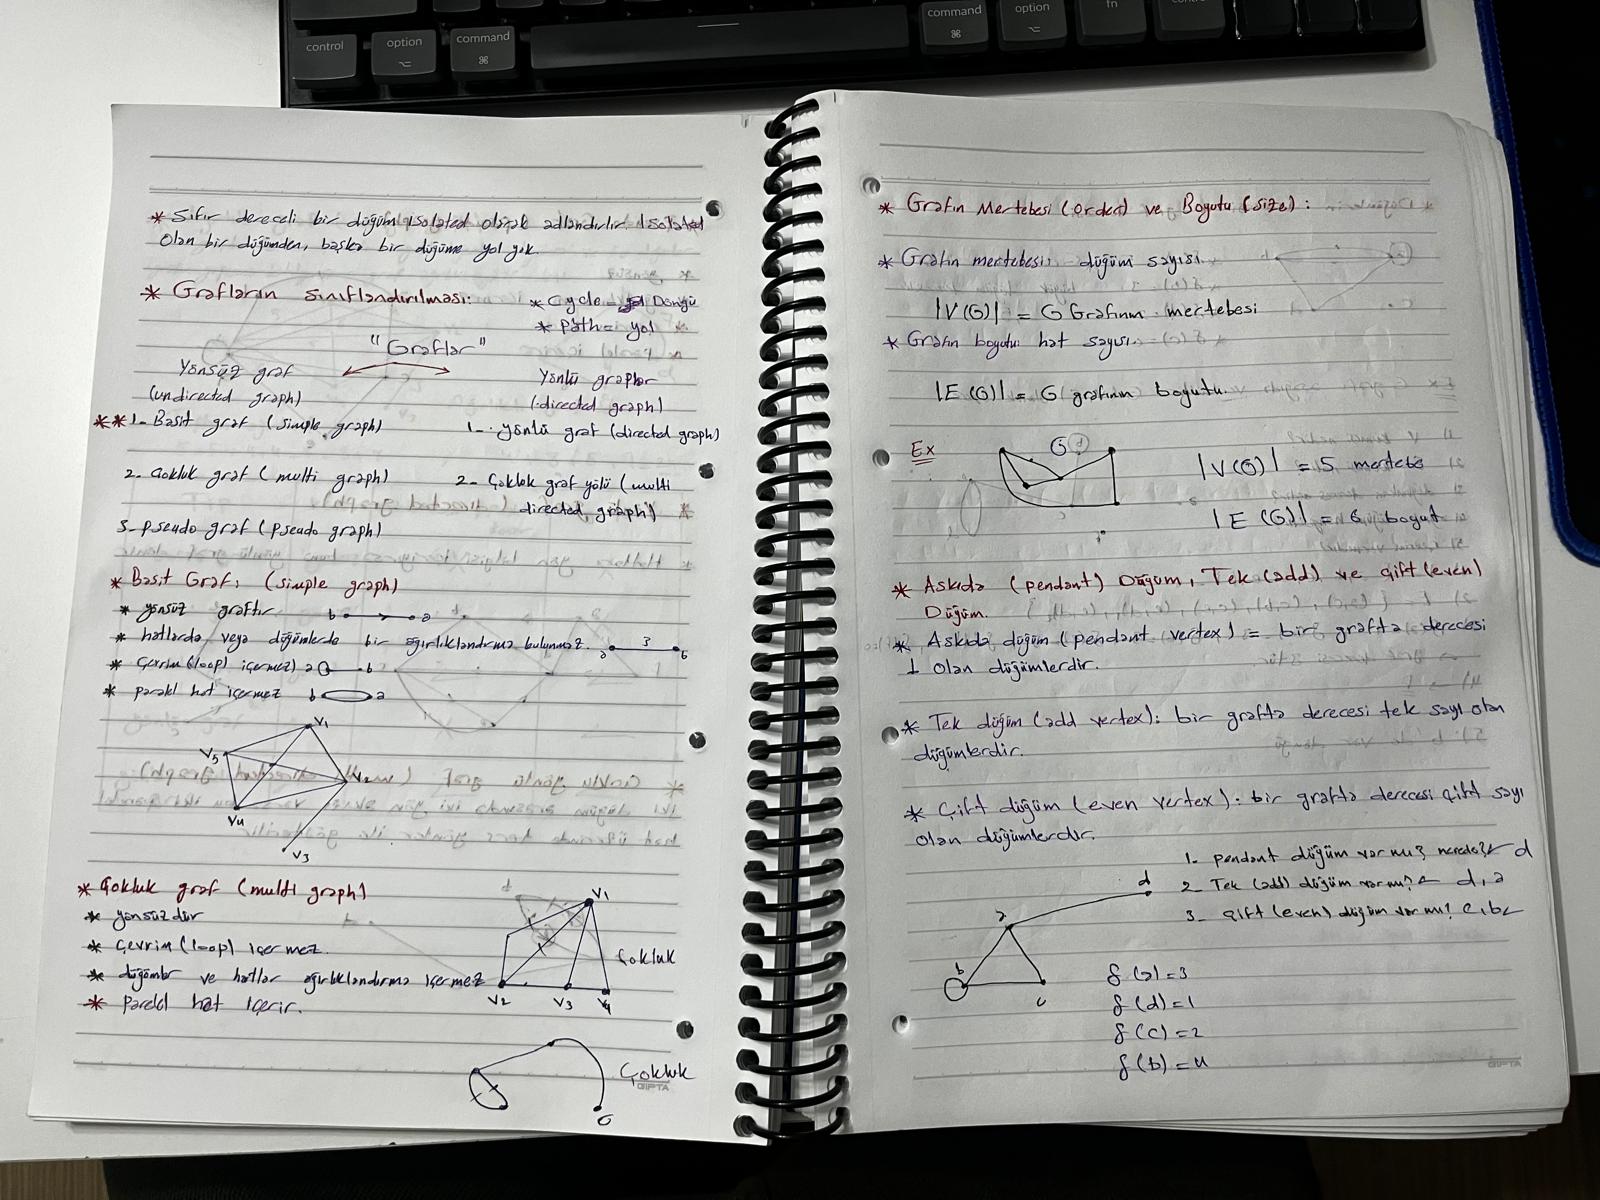 control
option
command
command
option
fn
control
* Sıfır dereceli bir düğüm Isolated olarak adlandırılır. Isolated
olan bir düğümden, başka bir düğüme yol yok.
* Grafların sınıflandırılması:
* Cycle = Döngü
* Path = yol
"Graflar"
Yönsüz graf
(undirected graph)
Yönlü graplar
(directed graph)
** 1- Basit graf (simple graph)
1- yönlü graf (directed graph)
2- Çokluk graf (multi graph)
2- Çokluk graf yölü (multi
directed graph)
3- pseudo graf (pseudo graph)
* Basit Graf: (simple graph)
* yönsüz graftır
b a
* hatlarda veya düğümlerde bir ağırlıklandırma bulunmaz.
a 3 b
* Çevrim (loop) içermez
a b
* paralel hat içermez
b a
V1
V5
V2
V4
V3
* Çokluk graf (multi graph)
* yönsüzdür
* Çevrim (loop) içermez.
* düğümler ve hatlar ağırlıklandırma içermez
* Paralel hat içerir.
V1
Çokluk
V2 V3 V4
Çokluk
GIPTA
* Grafın Mertebesi (Order) ve Boyutu (size):
* Grafın mertebesi: düğüm sayısı.
|V(G)| = G Grafının mertebesi
* Grafın boyutu: hat sayısı.
|E(G)| = G grafının boyutu.
Ex
G
|V(G)| = 5 mertebe
|E(G)| = 6 boyut
* Askıda (pendant) Düğüm, Tek (add) ve çift (even)
Düğüm.
* Askıda düğüm (pendant vertex) = bir grafta derecesi
1 olan düğümlerdir.
* Tek düğüm (add vertex): bir grafta derecesi tek sayı olan
düğümlerdir.
* Çift düğüm (even vertex): bir grafta derecesi çift sayı
olan düğümlerdir.
1- pendant düğüm var mı? nerede? d
2- Tek (add) düğüm var mı? d, a
3- çift (even) düğüm var mı? c, b
d
a
b
c
δ(a)=3
δ(d)=1
δ(c)=2
δ(b)=4
GIPTA